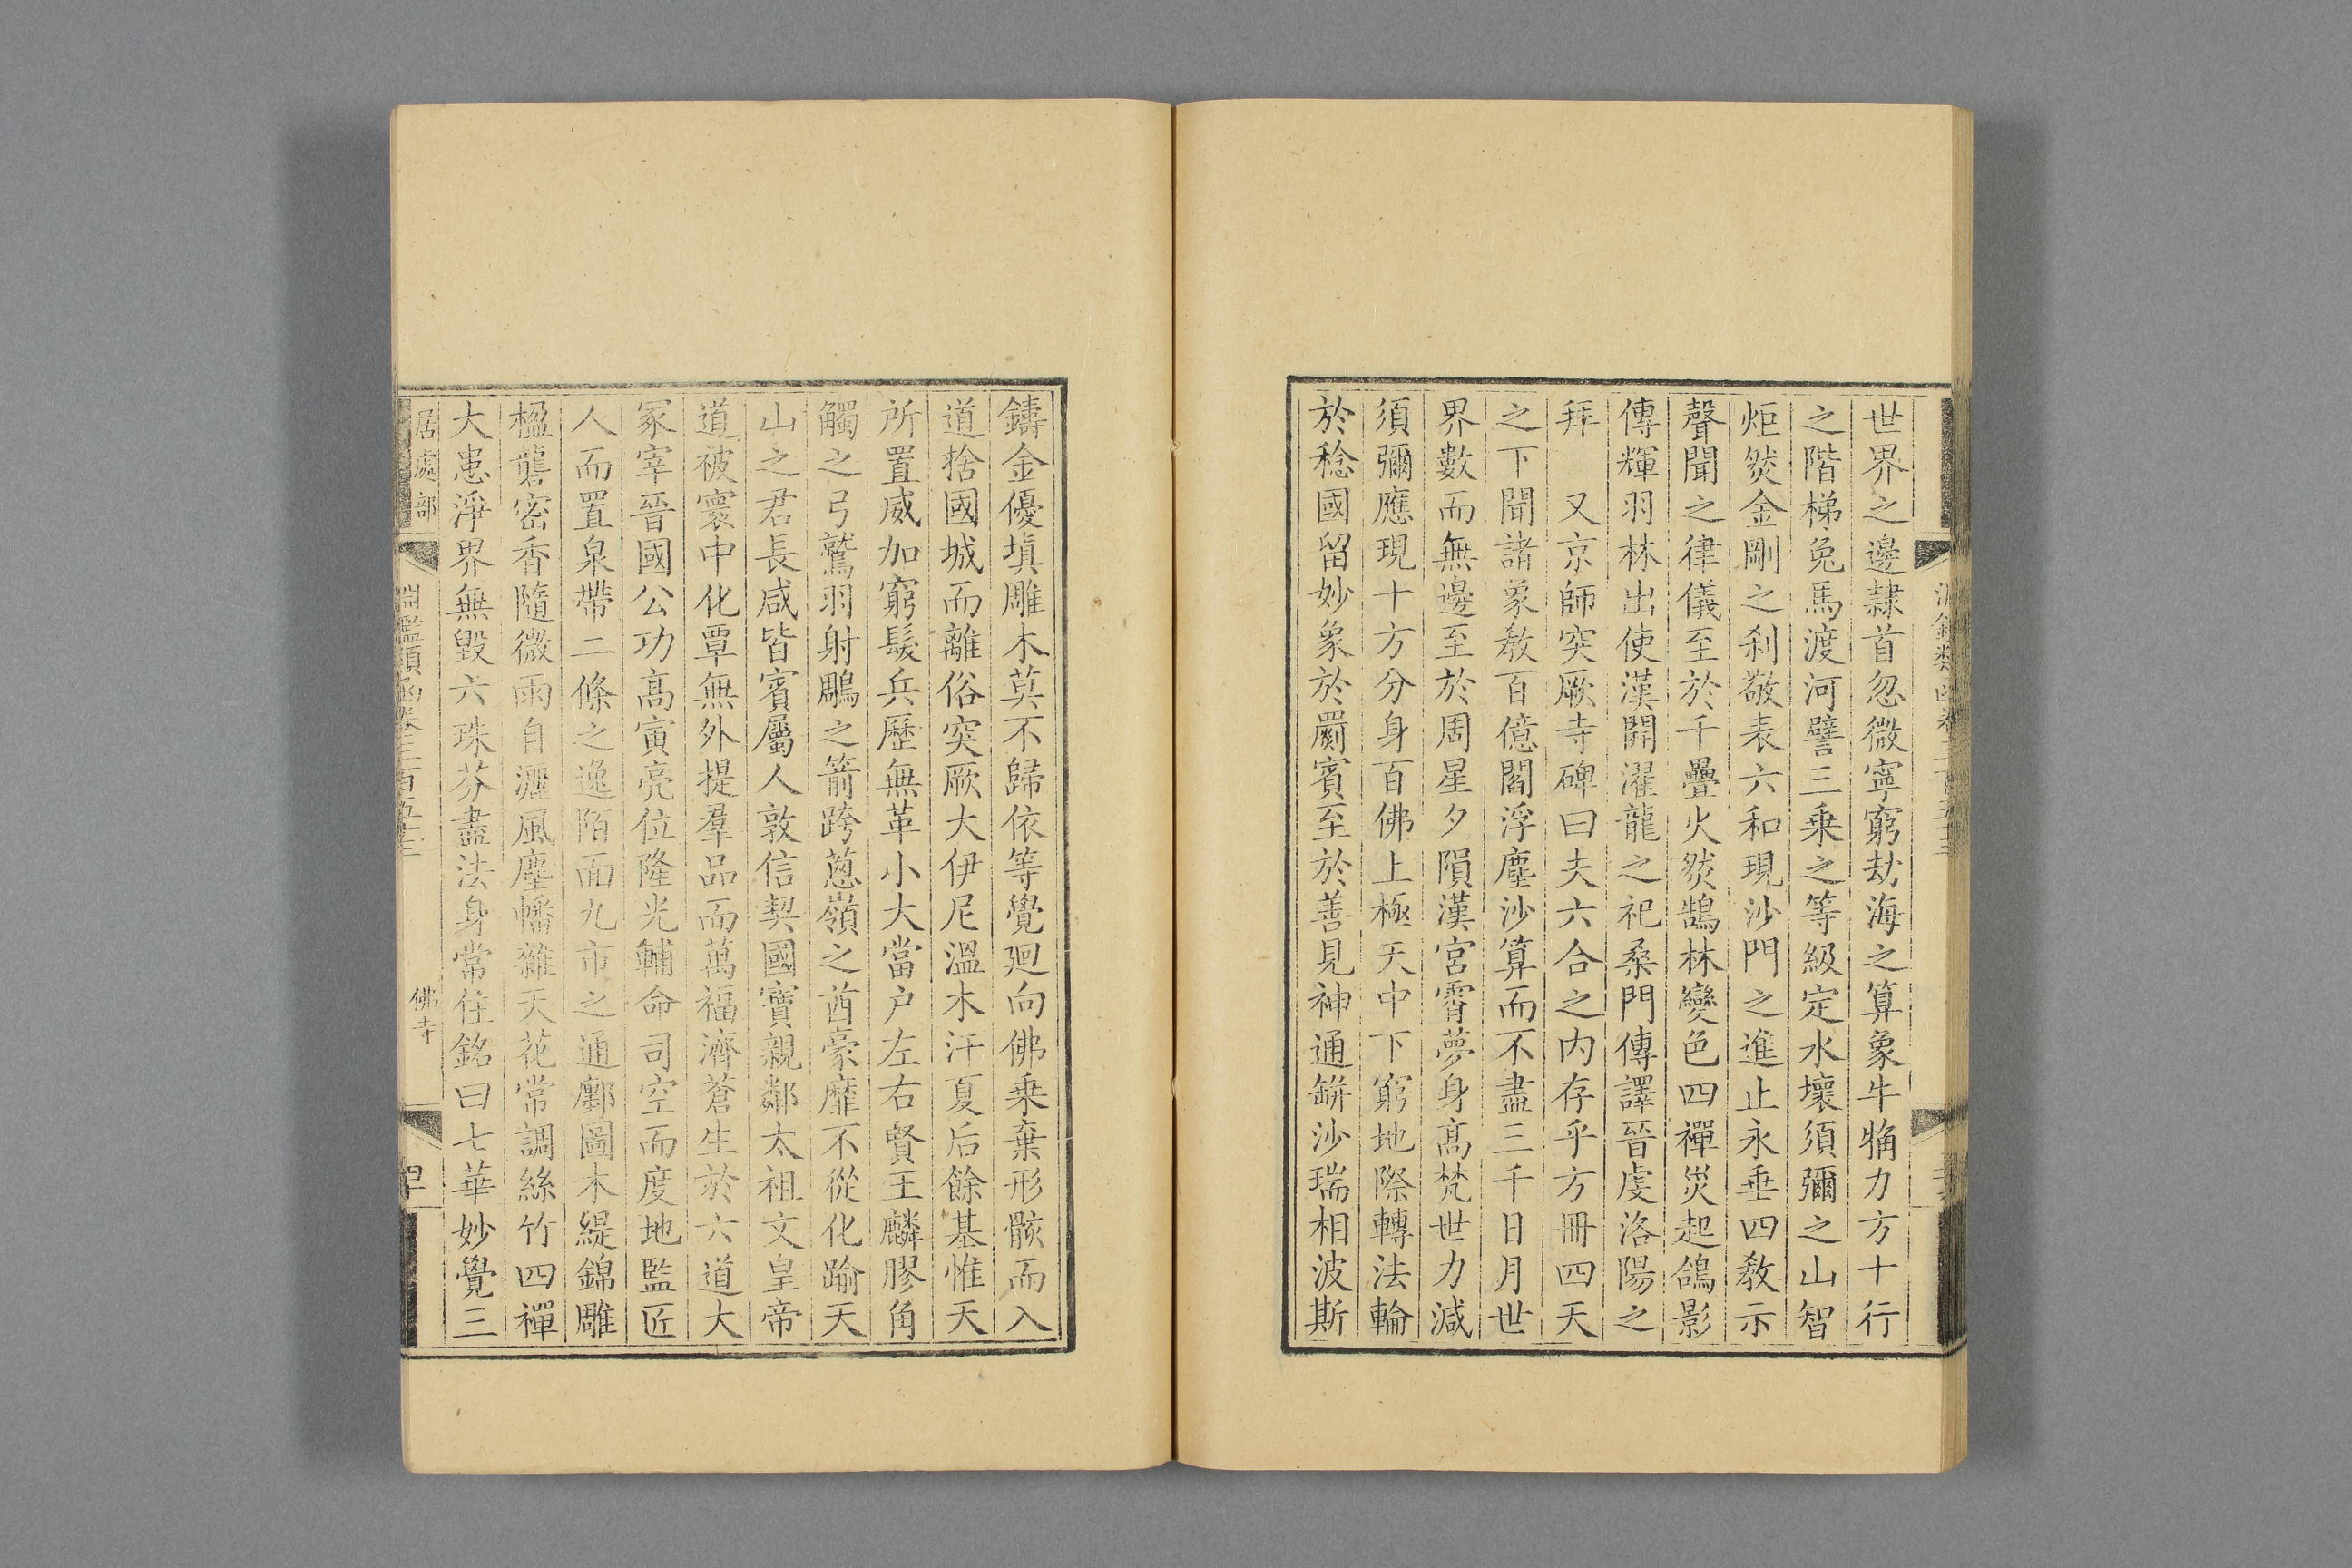 世界之邊隷首忽微寧窮劫海之算象牛犕力方十行
之階梯兔馬渡河譬三乗之等級定水壞須彌之山智
炬焚金剛之刹敬表六和現沙門之進止永垂四教示
聲聞之律儀至於千疊火焚鵠林變色四禪災起鴿影
傳輝羽林出使漢開濯龍之祀桑門傳譯晉虔洛陽之
拜　又京師突厥寺碑曰夫六合之内存乎方冊四天
之下聞諸象教百億閻浮塵沙算而不盡三千日月世
界數而無邊至於周星夕隕漢宫霄夢身髙梵世力減
須彌應現十方分身百佛上極天中下窮地際轉法輪
於稔國留妙象於罽賓至於善見神通缾沙瑞相波斯
鑄金優塡雕木莫不歸依等覺廻向佛乗棄形骸而入
道捨國城而離俗突厥大伊尼溫木汗夏后餘基惟天
所置威加窮髮兵歷無革小大當户左右賢王麟膠角
觸之弓鷲羽射鵰之箭跨蔥嶺之酋豪靡不從化踰天
山之君長咸皆賓屬人敦信契國寶親鄰太祖文皇帝
道被寰中化覃無外提羣品而萬福濟蒼生於六道大
冢宰晉國公功髙寅亮位隆光輔命司空而度地監匠
人而置臬帶二條之逸陌面九市之通鄽圖木緹錦雕
楹礱密香隨微雨自灑風塵幡雜天花常調絲竹四禪
大患淨界無毀六珠芬盡法身常住銘曰七華妙覺三
居處部
淵鑑類函卷三百五十三
佛寺